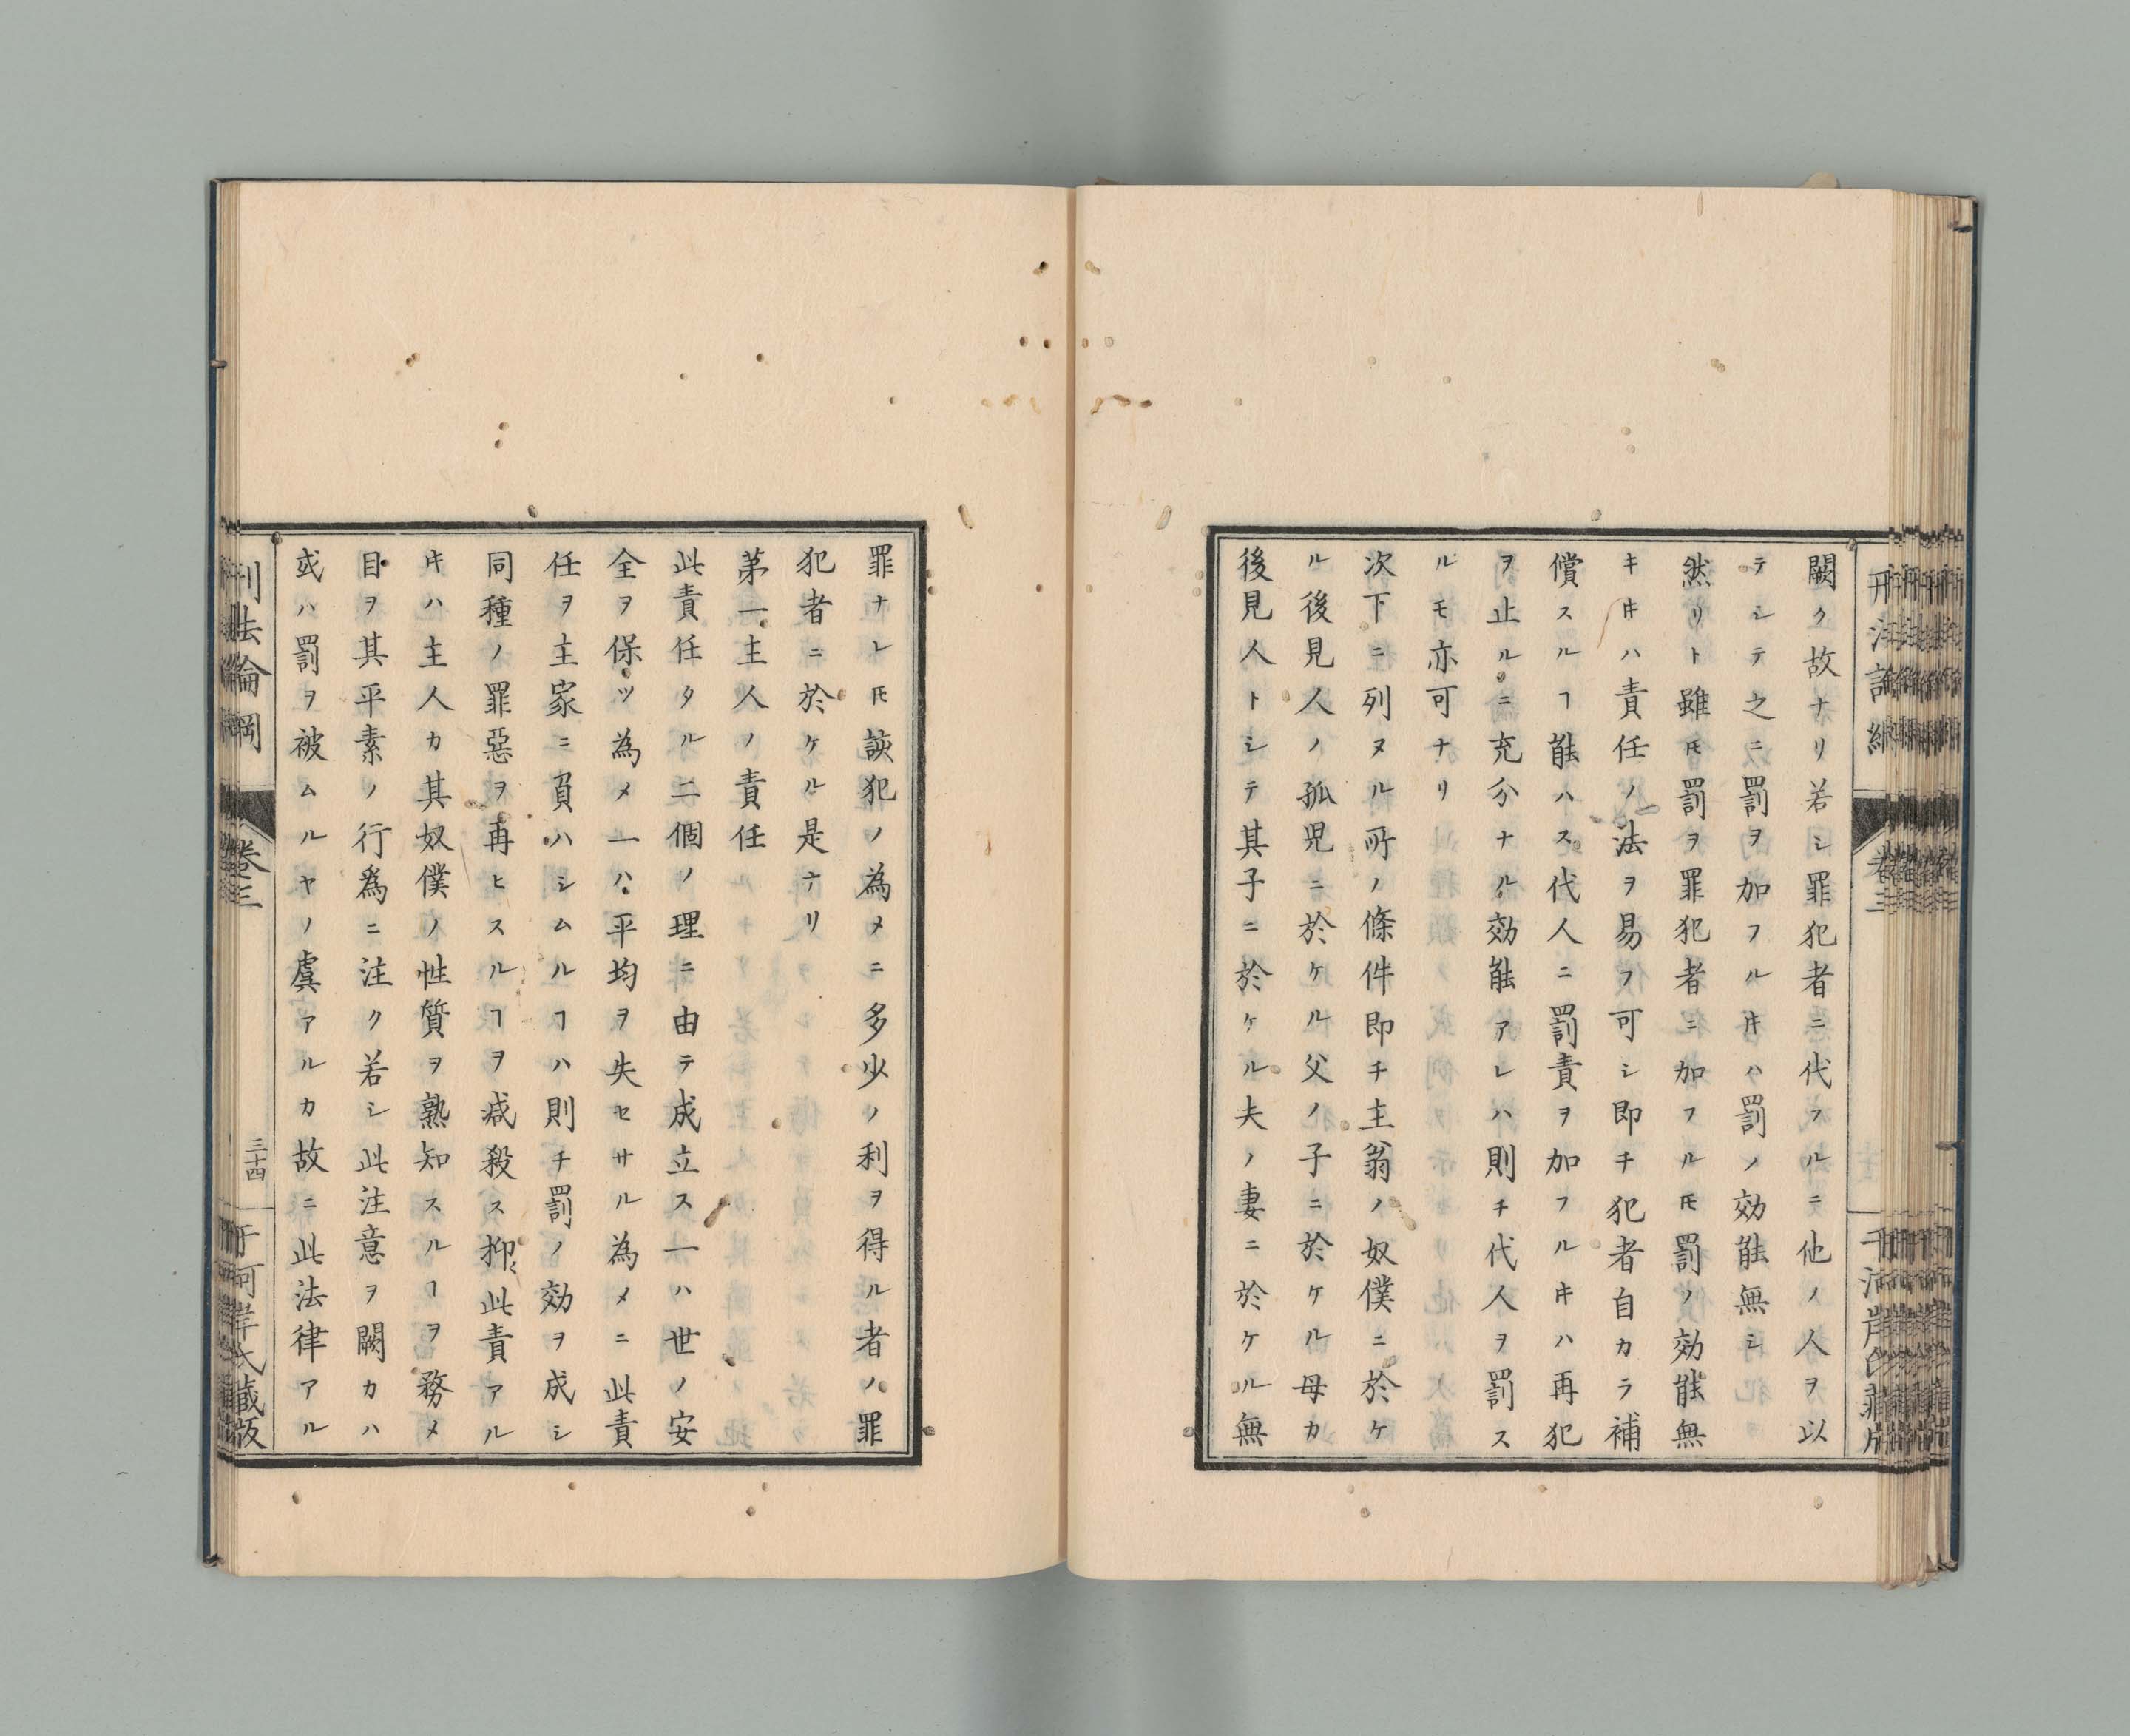 闕ク故ナリ若シ罪犯者ニ代フルニ他ノ人ヲ以
テシテ之ニ罰ヲ加フルキハ罰ノ効能無シ
然リト雖𪜈罰ヲ罪犯者ニ加フル𪜈罰ノ効能無
キキハ責任ノ法ヲ易フ可シ即チ犯者自カラ補
償スルヿ能ハス代人ニ罰責ヲ加フルキハ再犯
ヲ止ルニ充分ナル効能アレハ則チ代人ヲ罰ス
ルモ亦可ナリ
次下ニ列ヌル所ノ條件即チ主翁ノ奴僕ニ於ケ
ル後見人ノ孤児ニ於ケル父ノ子ニ於ケル母カ
後見人トシテ其子ニ於ケル夫ノ妻ニ於ケル無
罪ナレ𪜈該犯ノ為メニ多少ノ利ヲ得ル者ノ罪
犯者ニ於ケル是ナリ
第一主人ノ責任
此責任タル二個ノ理ニ由テ成立ス一ハ世ノ安
全ヲ保ツ為メ一ハ平均ヲ失セサル為メニ此責
任ヲ主家ニ負ハシムルヿハ則チ罰ノ効ヲ成シ
同種ノ罪惡ヲ再ヒスルヿヲ减殺ス抑此責アル
キハ主人カ其奴僕ノ性質ヲ熟知スルヿヲ務メ
目ヲ其平素ノ行爲ニ注ク若シ此注意ヲ闕カハ
或ハ罰ヲ被ムルヤノ虞アルカ故ニ此法律アル
刑法論綱
卷三
三十四
于河岸氏藏版